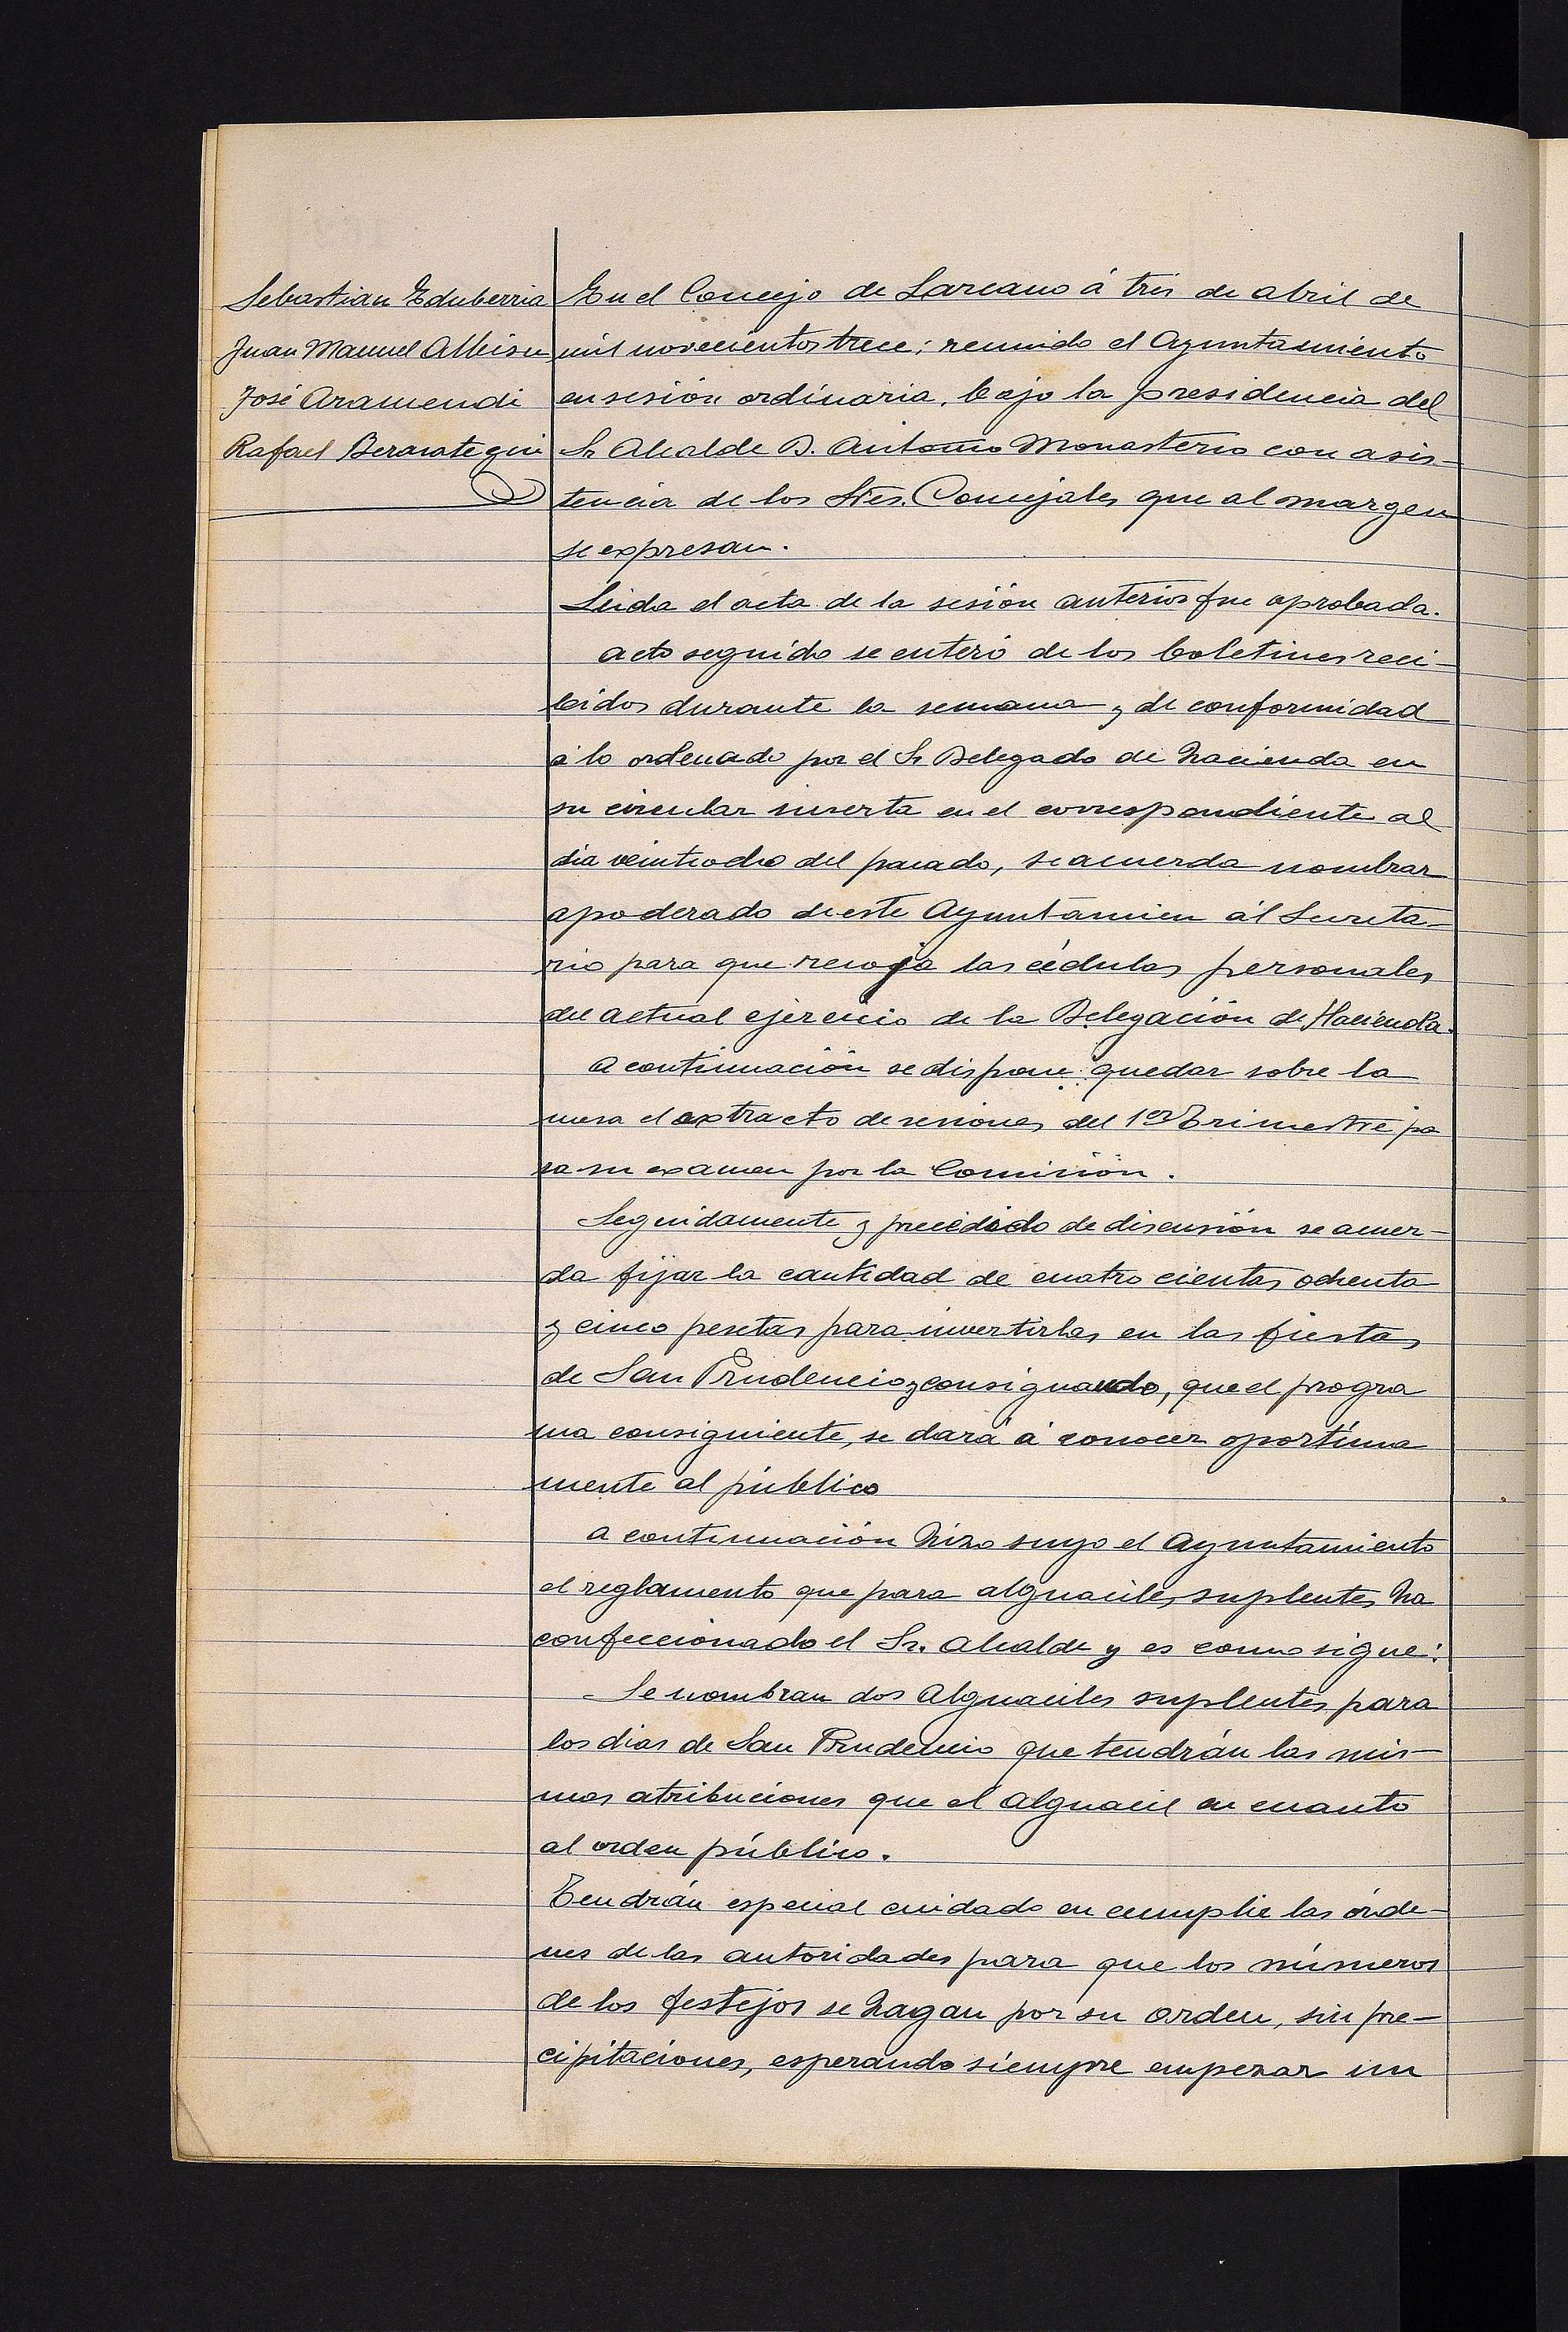 Sebastian Echeberria
Juan Manuel Albisu
José Aramendi
Rafael Berasategui
En el Concejo de Lazcano á tres de abril de
mil novecientos trece; reunido el Ayuntamiento
en sesión ordinaria, bajo la presidencia del
Sr Alcalde D. Antonio Monasterio con asis-
tencia de los Sres. Concejales que al margen
se expresan.
Leida el acta de la sesión anterior fue aprobada.
Acto seguido se enteró de los boletines reci-
bidos durante la semana y de conformidad
á lo ordenado por el Sr Delegado de hacienda en
su circular inserta en el correspondiente al
dia veintiocho del pasado, se acuerda nombrar
apoderado de este Ayuntamien ál Secreta-
rio para que recoja las cédulas personales
del actual ejercicio de la Delegación de Hacienda.
A continuación se dispone quedar sobre la
mesa el extracto de sesiones del 1er Trimestre pa
ra su examen por la Comisión.
Seguidamente y precedido de discusión se acuer-
da fijar la cantidad de cuatro cientas ochenta
y cinco pesetas para invertirlas en las fiestas
de San Prudencio y consignando, que el progra
ma consiguiente, se dará á conocer oportuna
mente al público
A continuación hizo suyo el Ayuntamiento
el reglamento que para alguaciles suplentes ha
confeccionado el Sr. Alcalde y es como sigue:
Se nombran dos Alguaciles suplentes para
los dias de San Prudencio que tendrán las mis-
mas atribuciones que el Alguacil en cuanto
al orden público.
Tendrán especial cuidado en cumplir las órde-
nes de las autoridades para que los números
de los festejos se hagan por su orden, sin pre-
cipitaciones, esperando siempre empezar un